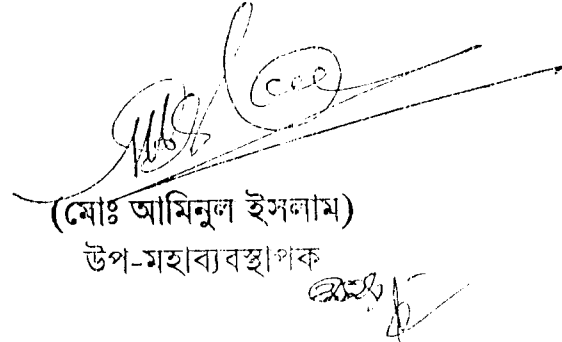 (মোঃ আমিনুল ইসলাম)
উপ-মহাব্যবস্থাপক